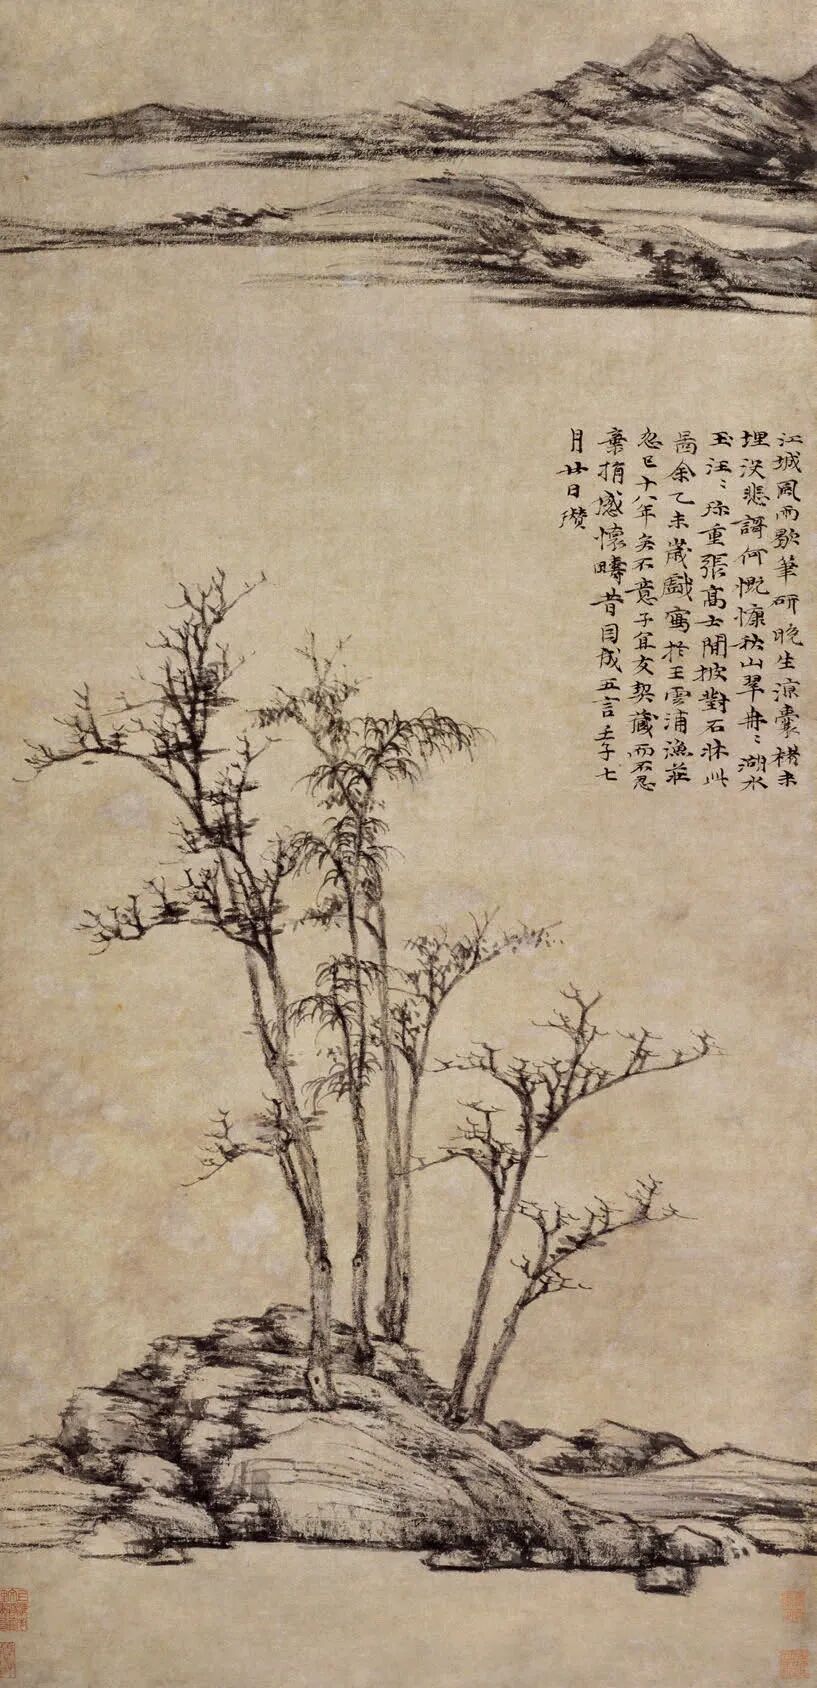 江城風雨歇筆研晚生涼囊楮未
埋没悲謌何慨慷秋山翠冉〻湖水
玉汪〻珎重張髙士閒披對石牀此
啚余乙未歲戲寫於王雲浦漁莊
忽已十八年矣不意子宜友契藏而不忍
棄捐感懷疇昔因成五言壬子七
月廿日瓚